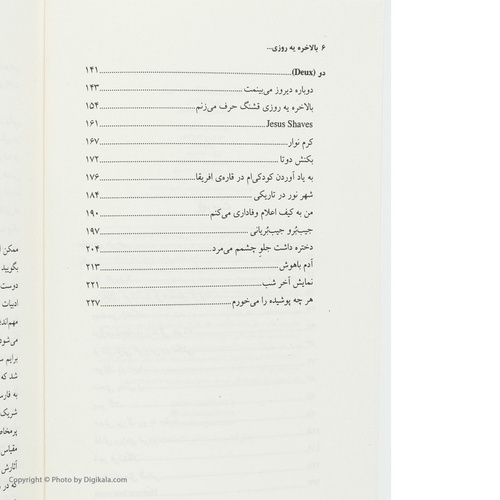 ۶ بالاخره یه روزی...
دو (Deux)...۱۴۱
دوباره دیروز می‌بینمت...۱۴۳
بالاخره یه روزی قشنگ حرف می‌زنم...۱۵۴
Jesus Shaves...۱۶۱
کرم نوار...۱۶۷
بکنش دوتا...۱۷۲
به یاد آوردن کودکی‌ام در قاره‌ی افریقا...۱۷۶
شهر نور در تاریکی...۱۸۴
من به کیف اعلام وفاداری می‌کنم...۱۹۰
جیب‌بُرو جیب‌بُریانی...۱۹۷
دختره داشت جلو چشمم می‌مرد...۲۰۴
آدم باهوش...۲۱۳
نمایش آخر شب...۲۲۱
هر چه پوشیده را می‌خورم...۲۲۷
ممکن
بگویید
دوست
ادبیات
مهم‌اند
می‌شود
برایم
شد که
به فارس
شریک
پرمخا
مقیاس
آثارش
که در
Copyright © Photo by Digikala.com